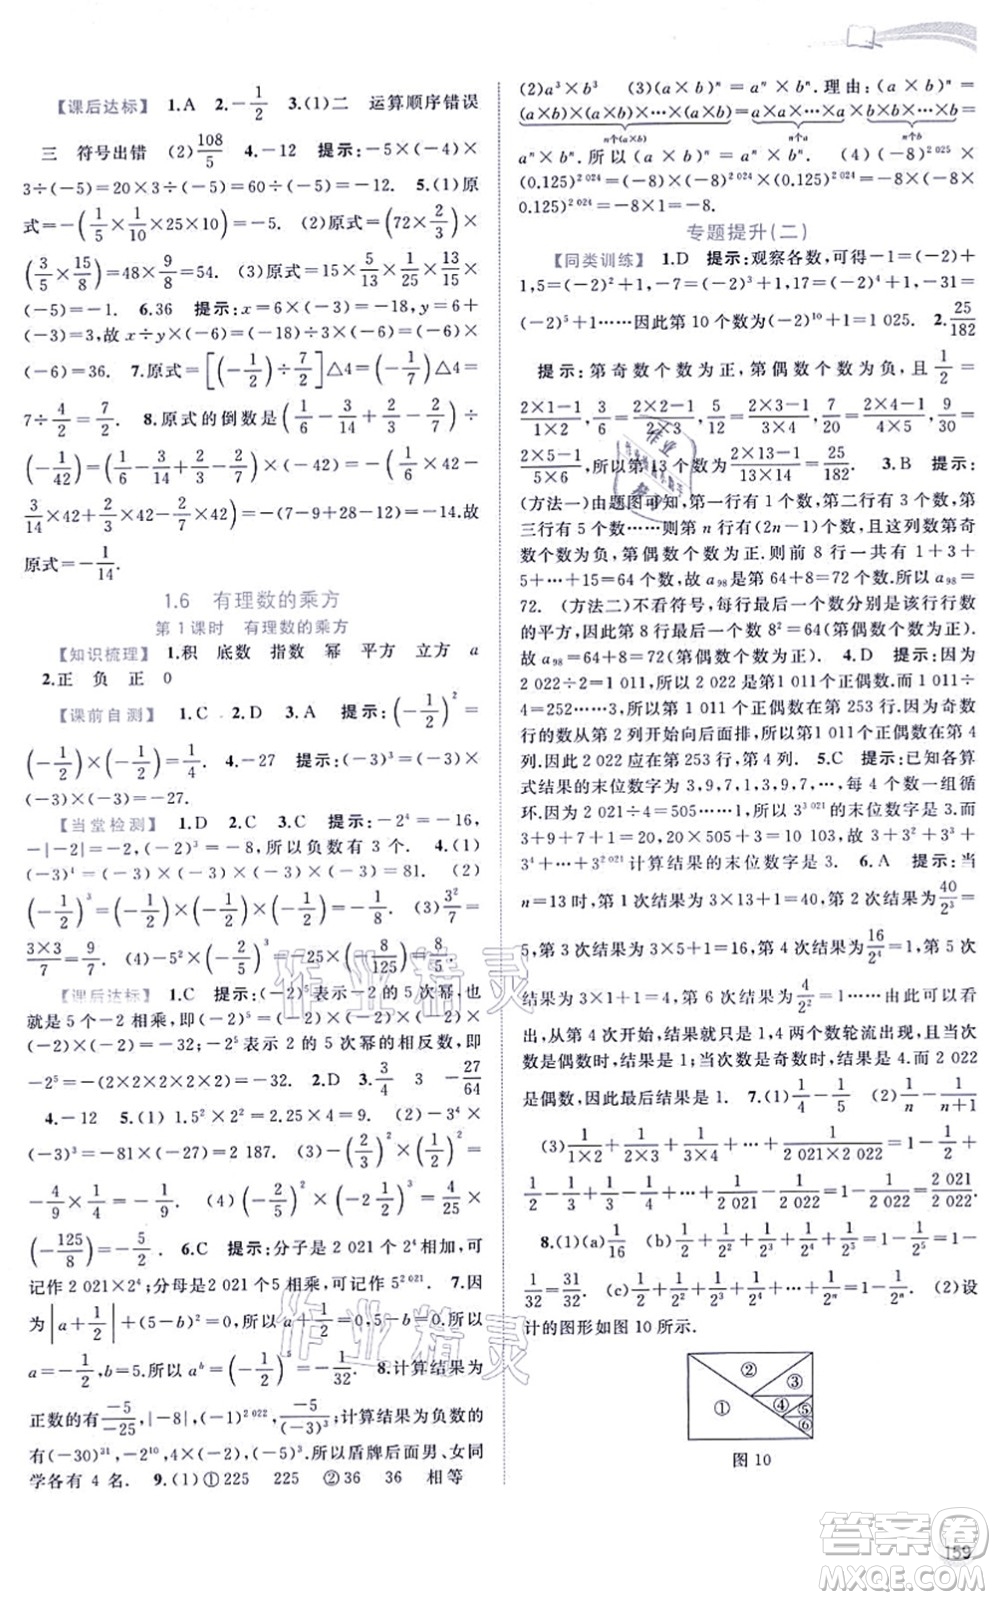 【课后达标】 1.A 2.-1/2 3.(1)二 运算顺序错误
三 符号出错 (2)108/5 4.-12 提示:-5×(-4)×
3÷(-5)=20×3÷(-5)=60÷(-5)=-12. 5.(1)原
式=-(1/5×1/10×25×10)=-5. (2)原式=(72×2/3)÷
(3/5×15/8)=48×9/8=54. (3)原式=1/5×(-5)÷(-1/5)×
(-5)=-1. 6.36 提示:x=6×(-3)=-18,y=6÷
(-3),故 x÷y×(-6)=(-18)÷3×(-6)=(-6)×
(-6)=36. 7.原式=[(-1/2)÷7/2]△4=(-1/7)△4=
7÷4/2=7/2. 8.原式的倒数是(1/6-3/14+2/3-2/7)÷
(-1/42)=(1/6-3/14+2/3-2/7)×(-42)=-(1/6×42-
3/14×42+2/3×42-2/7×42)=-(7-9+28-12)=-14.故
原式=-1/14.
1.6 有理数的乘方
第1课时 有理数的乘方
【知识梳理】 1.积 底数 指数 幂 平方 立方 a
2.正 负 正 0
【课前自测】 1.C 2.D 3.A 提示:(-1/2)²=
(-1/2)×(-1/2)=1/4. 4.-27 提示:(-3)³=(-3)×
(-3)×(-3)=-27.
【当堂检测】 1.D 2.C 3.C 提示:-2⁴=-16,
-|-2|=-2,(-1)⁹=-1,所以负数有 3 个. 4.(1)
(-3)⁴=(-3)×(-3)×(-3)×(-3)=81. (2)
(-1/2)³=(-1/2)×(-1/2)×(-1/2)=-1/8. (3)3²/7=
3×3/7=9/7. (4)-1×(-2/5)³=-1×(-8/125)=8/5.
【课后达标】 1.C 提示:(-2)⁵表示-2 的 5 次幂,也
就是 5 个-2 相乘,即(-2)⁵=(-2)×(-2)×(-2)×
(-2)×(-2)=-32;-2⁵表示 2 的 5 次幂的相反数,即
-2⁵=-(2×2×2×2×2)=-32. 2.D 3.3/4 3 -27/64
4.-12 5.(1)1.5²×2²=2.25×4=9. (2)-3⁴×
(-3)²=-81×9=-729. (3)-(2/3)²×(-1/2)²=
-4/9×1/4=-1/9. (4)(-2/5)²×(-2 1/2)³=4/25×
(-125/8)=-5/2. 6.C 提示:分子是 2 021 个 2⁴相加,可
记作 2 021×2⁴;分母是 2 021 个 5 相乘,可记作 5²⁰²¹. 7.因
为|a+1/2|+(5-b)²=0,所以 a+1/2=0,5-b=0.所以
a=-1/2,b=5.所以 aᵇ=(-1/2)⁵=-1/32. 8.计算结果为
正数的有-5/-25,|-8|,(-1)²⁰²²,-5/(-3)³;计算结果为负数的
有(-30)³¹,-2¹⁰,4×(-2),(-9)³.所以盾牌后面男、女同
学各有 4 名. 9.(1)①225 225 ②36 36 相等
(2)a³×b³ (3)(a×b)ⁿ=aⁿ×bⁿ.理由:(a×b)ⁿ=
(a×b)×(a×b)×…×(a×b)=a×a×…×a×b×b×…×b=
n个(a×b) n个a n个b
aⁿ×bⁿ.所以(a×b)ⁿ=aⁿ×bⁿ. (4)(-8)²⁰²⁵×
(0.125)²⁰²⁴=(-8)×(-8)²⁰²⁴×(0.125)²⁰²⁴=(-8)×(-8×
0.125)²⁰²⁴=-8×1=-8.
专题提升(二)
【同类训练】 1.D 提示:观察各数,可得-1=(-2)+
1,5=(-2)²+1,-7=(-2)³+1,17=(-2)⁴+1,-31=
(-2)⁵+1……因此第 10 个数为(-2)¹⁰+1=1 025. 2.25/182
提示:第奇数个数为正,第偶数个数为负,且 1/2=
2×1-1/1×2,3/6=2×2-1/2×3,5/12=2×3-1/3×4,7/20=2×4-1/4×5,9/30=
2×5-1/5×6,所以第 13 个数为2×13-1/13×14=25/182. 3.B 提示:
(方法一)由题图可知,第一行有 1 个数,第二行有 3 个数,第
三行有 5 个数……则第 n 行有(2n-1)个数,且这列数第奇
数个数为负,第偶数个数为正.则前 8 行一共有 1+3+
5+…+15=64 个数,故 a₉₈=64+8=72.所以 a₉₈=
72. (方法二)不看符号,每行的最后一个数分别是该行行数
的平方,因此第 8 行最后一个数是 8²=64(第偶数个数为
正).故 a₉₈=64+8=72(第偶数个数为正). 4.D 提示:因为
2 022÷2=1 011,所以 2 022 是第 1 011 个正偶数.因为 1 011÷
4=252……3,所以第 1 011 个正偶数在第 253 行.因为奇数行
的数从第 2 列开始向后面排,所以第1 011个正偶数在第 4
列.因此 2 022 在第 253 行,第 4 列. 5.C 提示:已知各算
式结果的末位数字为 3,9,7,1,3,9,7,…,每 4 个数一组循
环.因为 2 021÷4=505……1,所以 3³⁰²¹的末位数字是 3.因为
3+9+7+1=20,20×505+3=10 103,故 3+3²+3³+
3⁴+…+3²⁰²¹计算结果的末位数字是 3. 6.A 提示:当
n=13 时,第 1 次结果为 3×13+1=40,第 2 次结果为40/2³=
5,第 3 次结果为 3×5+1=16,第 4 次结果为16/2⁴=1,第 5 次
结果为 3×1+1=4,第 6 次结果为4/2²=1……因此可以看
出,从第 4 次开始,结果就只是 1,4 两个数轮流出现,且当次
数是偶数时,结果是 1;当次数是奇数时,结果是 4.而 2 022
是偶数,因此最后结果是 1. 7.(1)1/4-1/5 (2)1/n-1/n+1
(3)1/1×2+1/2×3+1/3×4+…+1/2 021×2 022=1-1/2+
1/2-1/3+1/3-1/4+…+1/2 021-1/2 022=1-1/2 022=2 021/2 022.
8.(1)(a)1/16 (b)1/2+1/2²+1/2³+1/2⁴+1/2⁵=1-1/2⁵=
1-1/32=31/32. (c)1/2+1/2²+1/2³+…+1/2ⁿ=1-1/2ⁿ. (2)设
计的图形如图 10 所示.
① ② ③ ④ ⑤ ⑥
图 10
159
作业精灵
作业精灵
答案圈
MXQE.COM